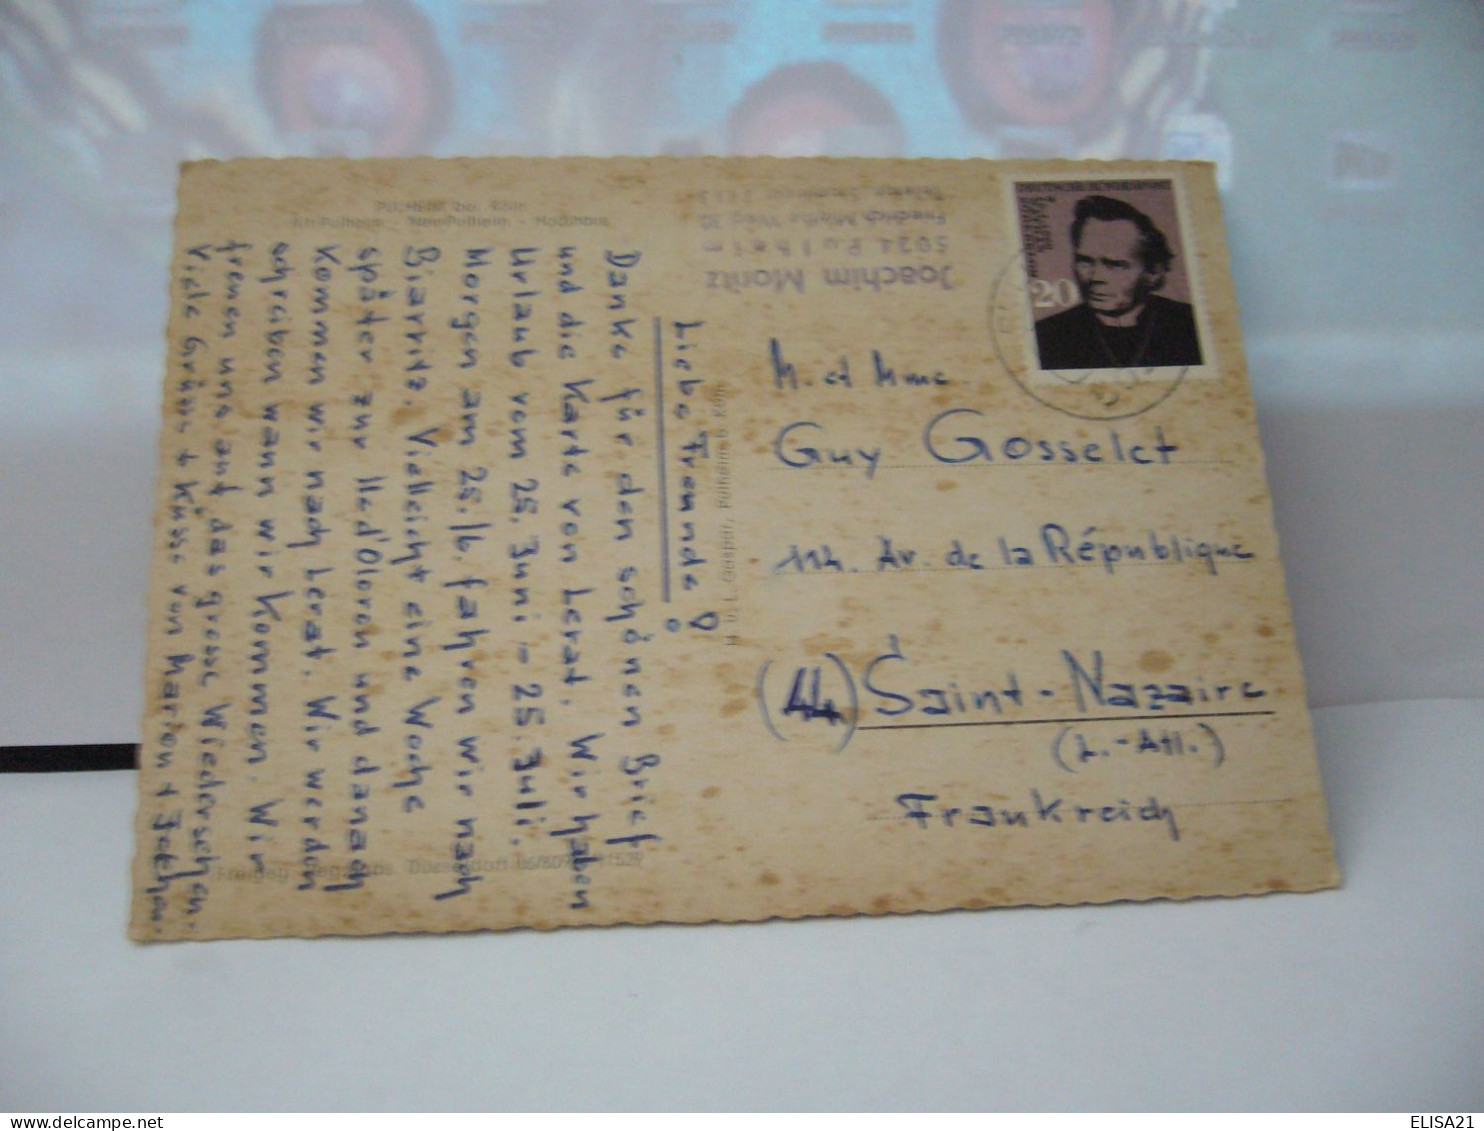 PULHEIM bei Köln
Alt-Pulheim - Neu-Pulheim - Hochhaus
Joachim Moritz
5024 Pulheim
Liebe Freunde!
Danke für den schönen Brief
und die Karte von Lerat. Wir haben
Urlaub vom 25. Juni - 25. Juli.
Morgen am 25./6. fahren wir nach
Biarritz. Vielleicht eine Woche
später zur Ile d'Oloron und danach
kommen wir nach Lerat. Wir werden
schreiben wann wir kommen. Wir
freuen uns auf das grosse Wiedersehen.
Viele Grüsse + Küsse von Marion + Jochen.
DEUTSCHE BUNDESPOST
20
M. et Mme.
Guy Gosselet
114. Av. de la République
(44) Saint-Nazaire
(L.-Atl.)
Frankreich
ELISA21